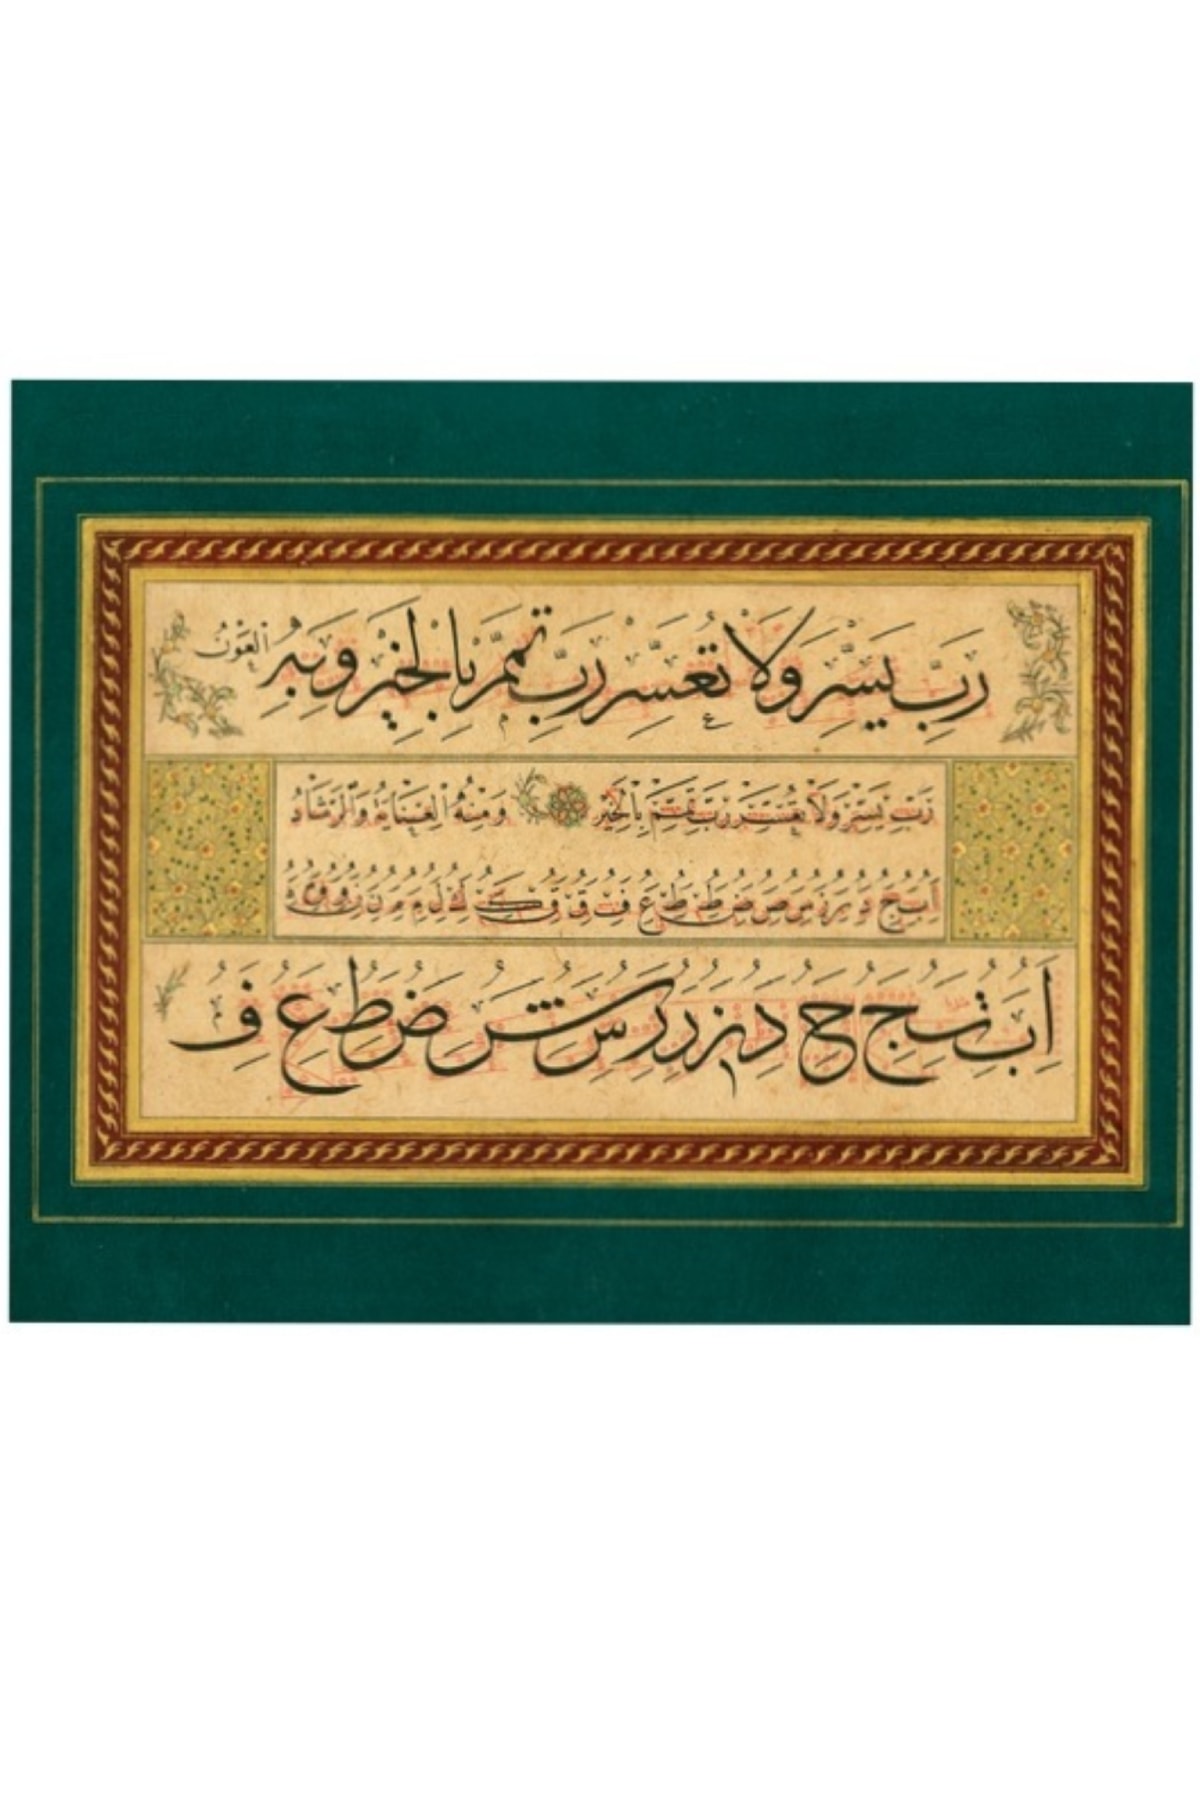 رَبِّ يَسِّرْ وَلَا تُعَسِّرْ رَبِّ تَمِّمْ بِالْخَيْرِ وَبِهِ الْعَوْنُ
رَبِّ يَسِّرْ وَلَا تُعَسِّرْ رَبِّ تَمِّمْ بِالْخَيْرِ وَمِنْهُ الْعِنَايَةُ وَالرَّشَادُ
ا ب ج د ر س ص ط ع ف ق ك ل م ن و
ا ب ج ح د ر س ص ط ع ف